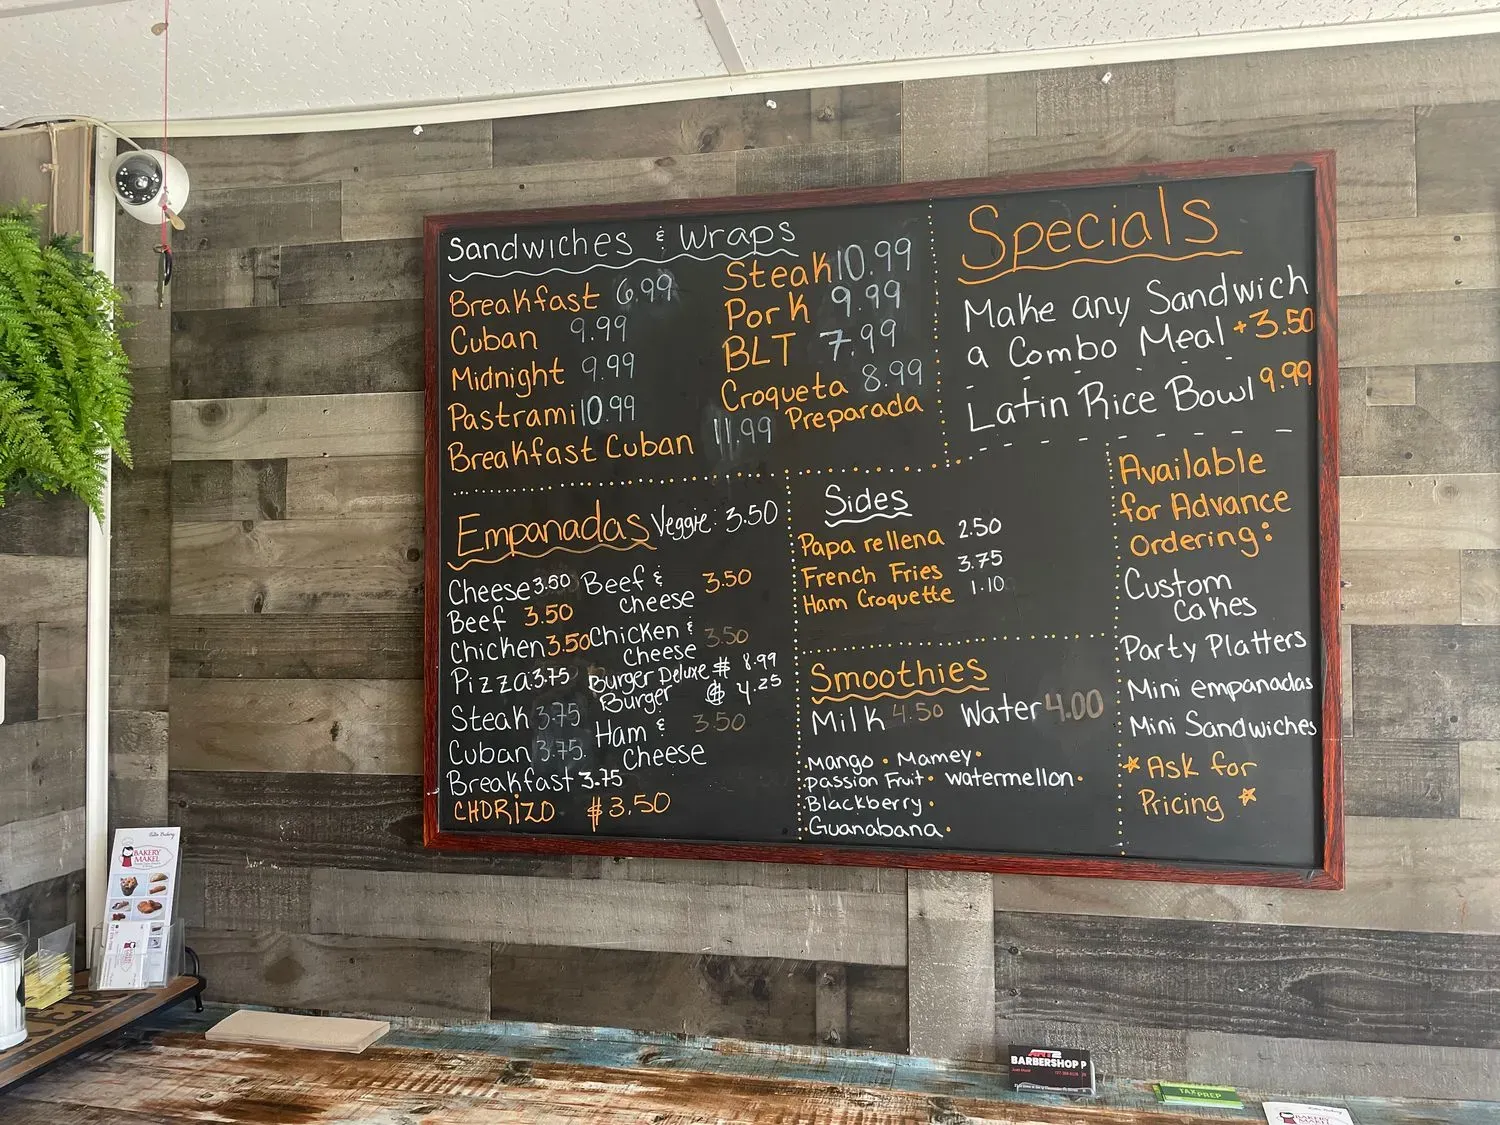 Sandwiches & Wraps
Breakfast 6.99
Cuban 9.99
Midnight 9.99
Pastrami 10.99
Breakfast Cuban 11.99
Steak 10.99
Pork 9.99
BLT 7.99
Croqueta 8.99
Preparada
Specials
Make any Sandwich
a Combo Meal +3.50
Latin Rice Bowl 9.99
Empanadas Veggie: 3.50
Cheese 3.50
Beef 3.50
Chicken 3.50
Pizza 3.75
Steak 3.75
Cuban 3.75
Breakfast 3.75
CHORIZO $3.50
Beef & 3.50
cheese
Chicken & 3.50
Cheese
Burger Deluxe $ 8.99
Burger $ 4.25
Ham & 3.50
Cheese
Sides
Papa rellena 2.50
French Fries 3.75
Ham Croquette 1.10
Smoothies
Milk 4.50 Water 4.00
·Mango · Mamey·
·Passion Fruit· watermellon·
·Blackberry·
·Guanabana·
Available
for Advance
Ordering:
Custom
Cakes
Party Platters
Mini empanadas
Mini Sandwiches
* Ask for
Pricing *
BAKERY
MAKEL
BARBERSHOP P
TAX PREP
BAKERY
MAKEL